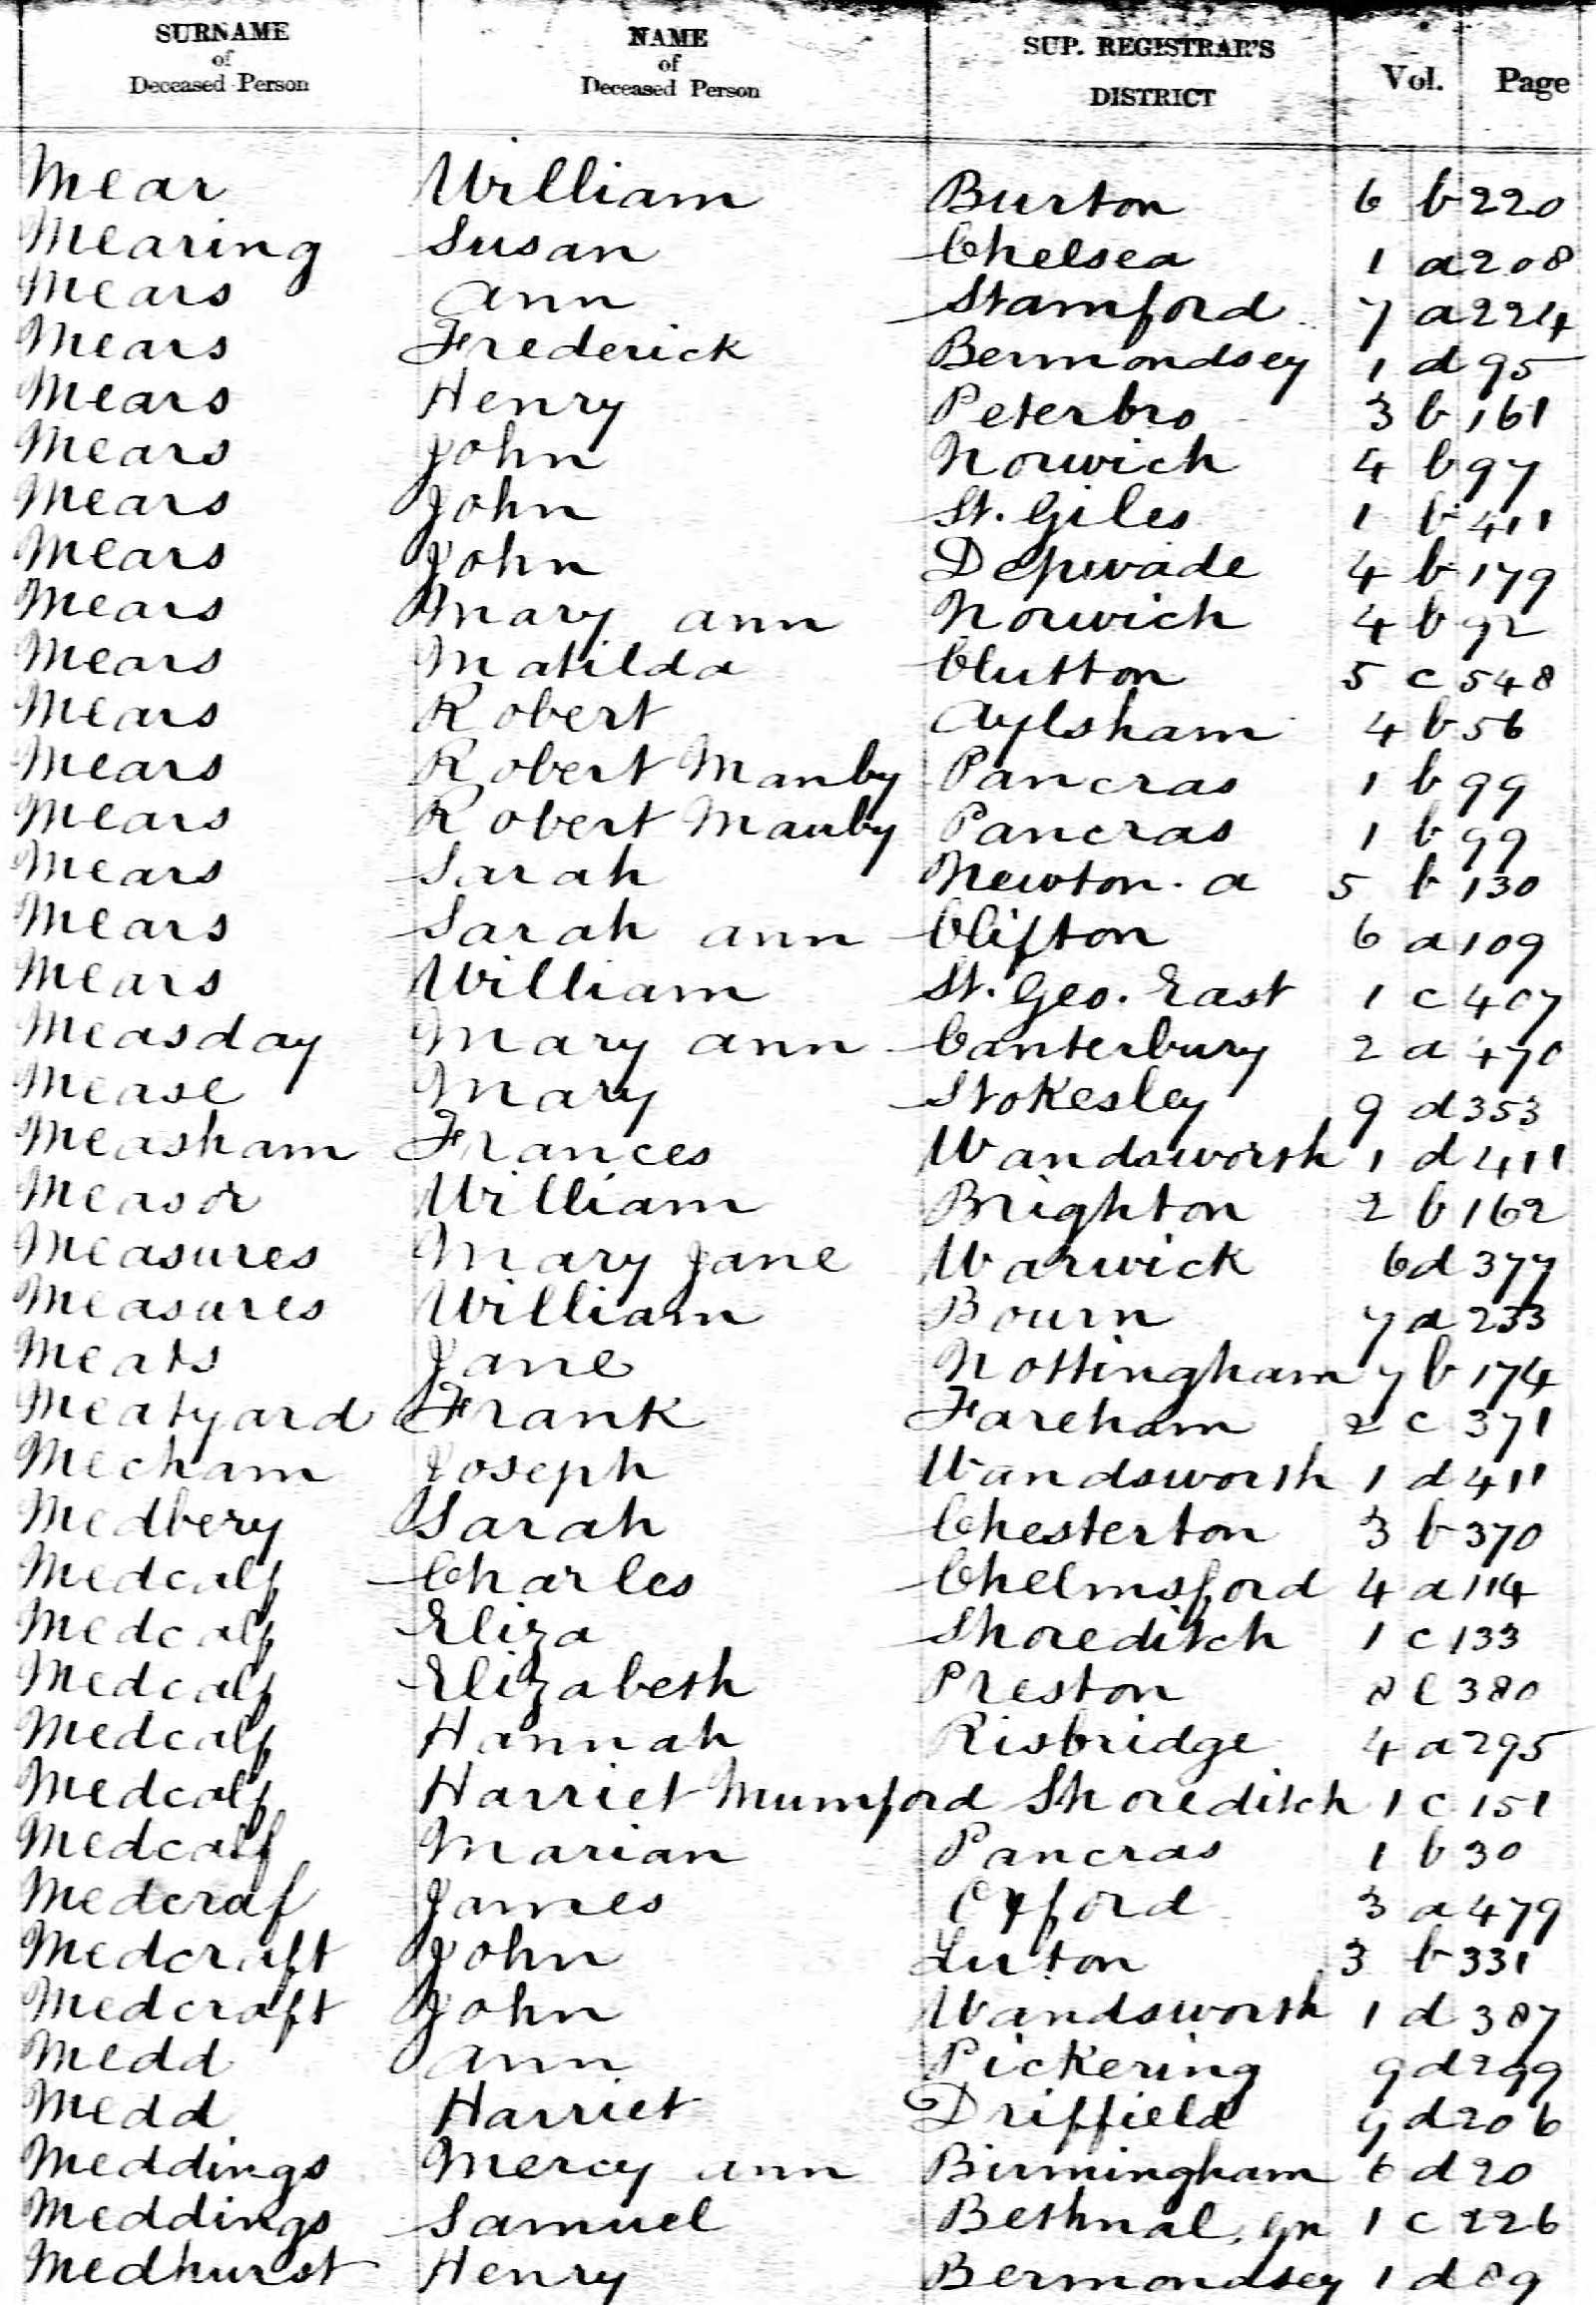 SURNAME of Deceased Person NAME of Deceased Person SUP. REGISTRAR'S DISTRICT Vol. Page
Mear William Burton 6 b 220
Mearing Susan Chelsea 1 a 208
Mears Ann Stamford 7 a 224
Mears Frederick Bermondsey 1 d 95
Mears Henry Peterbro 3 b 161
Mears John Norwich 4 b 97
Mears John St. Giles 1 b 411
Mears John Depwade 4 b 179
Mears Mary Ann Norwich 4 b 92
Mears Matilda Clutton 5 c 548
Mears Robert Aylsham 4 b 56
Mears Robert Manby Pancras 1 b 99
Mears Robert Mauby Pancras 1 b 99
Mears Sarah Newton. A 5 b 130
Mears Sarah Ann Clifton 6 a 109
Mears William St. Geo. East 1 c 407
Measday Mary Ann Canterbury 2 a 470
Mease Mary Stokesley 9 d 353
Measham Frances Wandsworth 1 d 411
Measor William Brighton 2 b 162
Measures Mary Jane Warwick 6 d 377
Measures William Bourn 7 a 233
Meats Jane Nottingham 7 b 174
Meatyard Frank Fareham 2 c 371
Mecham Joseph Wandsworth 1 d 411
Medbery Sarah Chesterton 3 b 370
Medcalf Charles Chelmsford 4 a 114
Medcalf Eliza Shoreditch 1 c 133
Medcalf Elizabeth Preston 8 e 380
Medcalf Hannah Risbridge 4 a 295
Medcalf Harriet Mumford Shoreditch 1 c 151
Medcalf Marian Pancras 1 b 30
Medcraf James Oxford 3 a 479
Medcraft John Luton 3 b 331
Medcraft John Wandsworth 1 d 387
Medd Ann Pickering 9 d 299
Medd Harriet Driffield 9 d 206
Meddings Mercy Ann Birmingham 6 d 20
Meddings Samuel Bethnal. Gn 1 c 226
Medhurst Henry Bermondsey 1 d 89